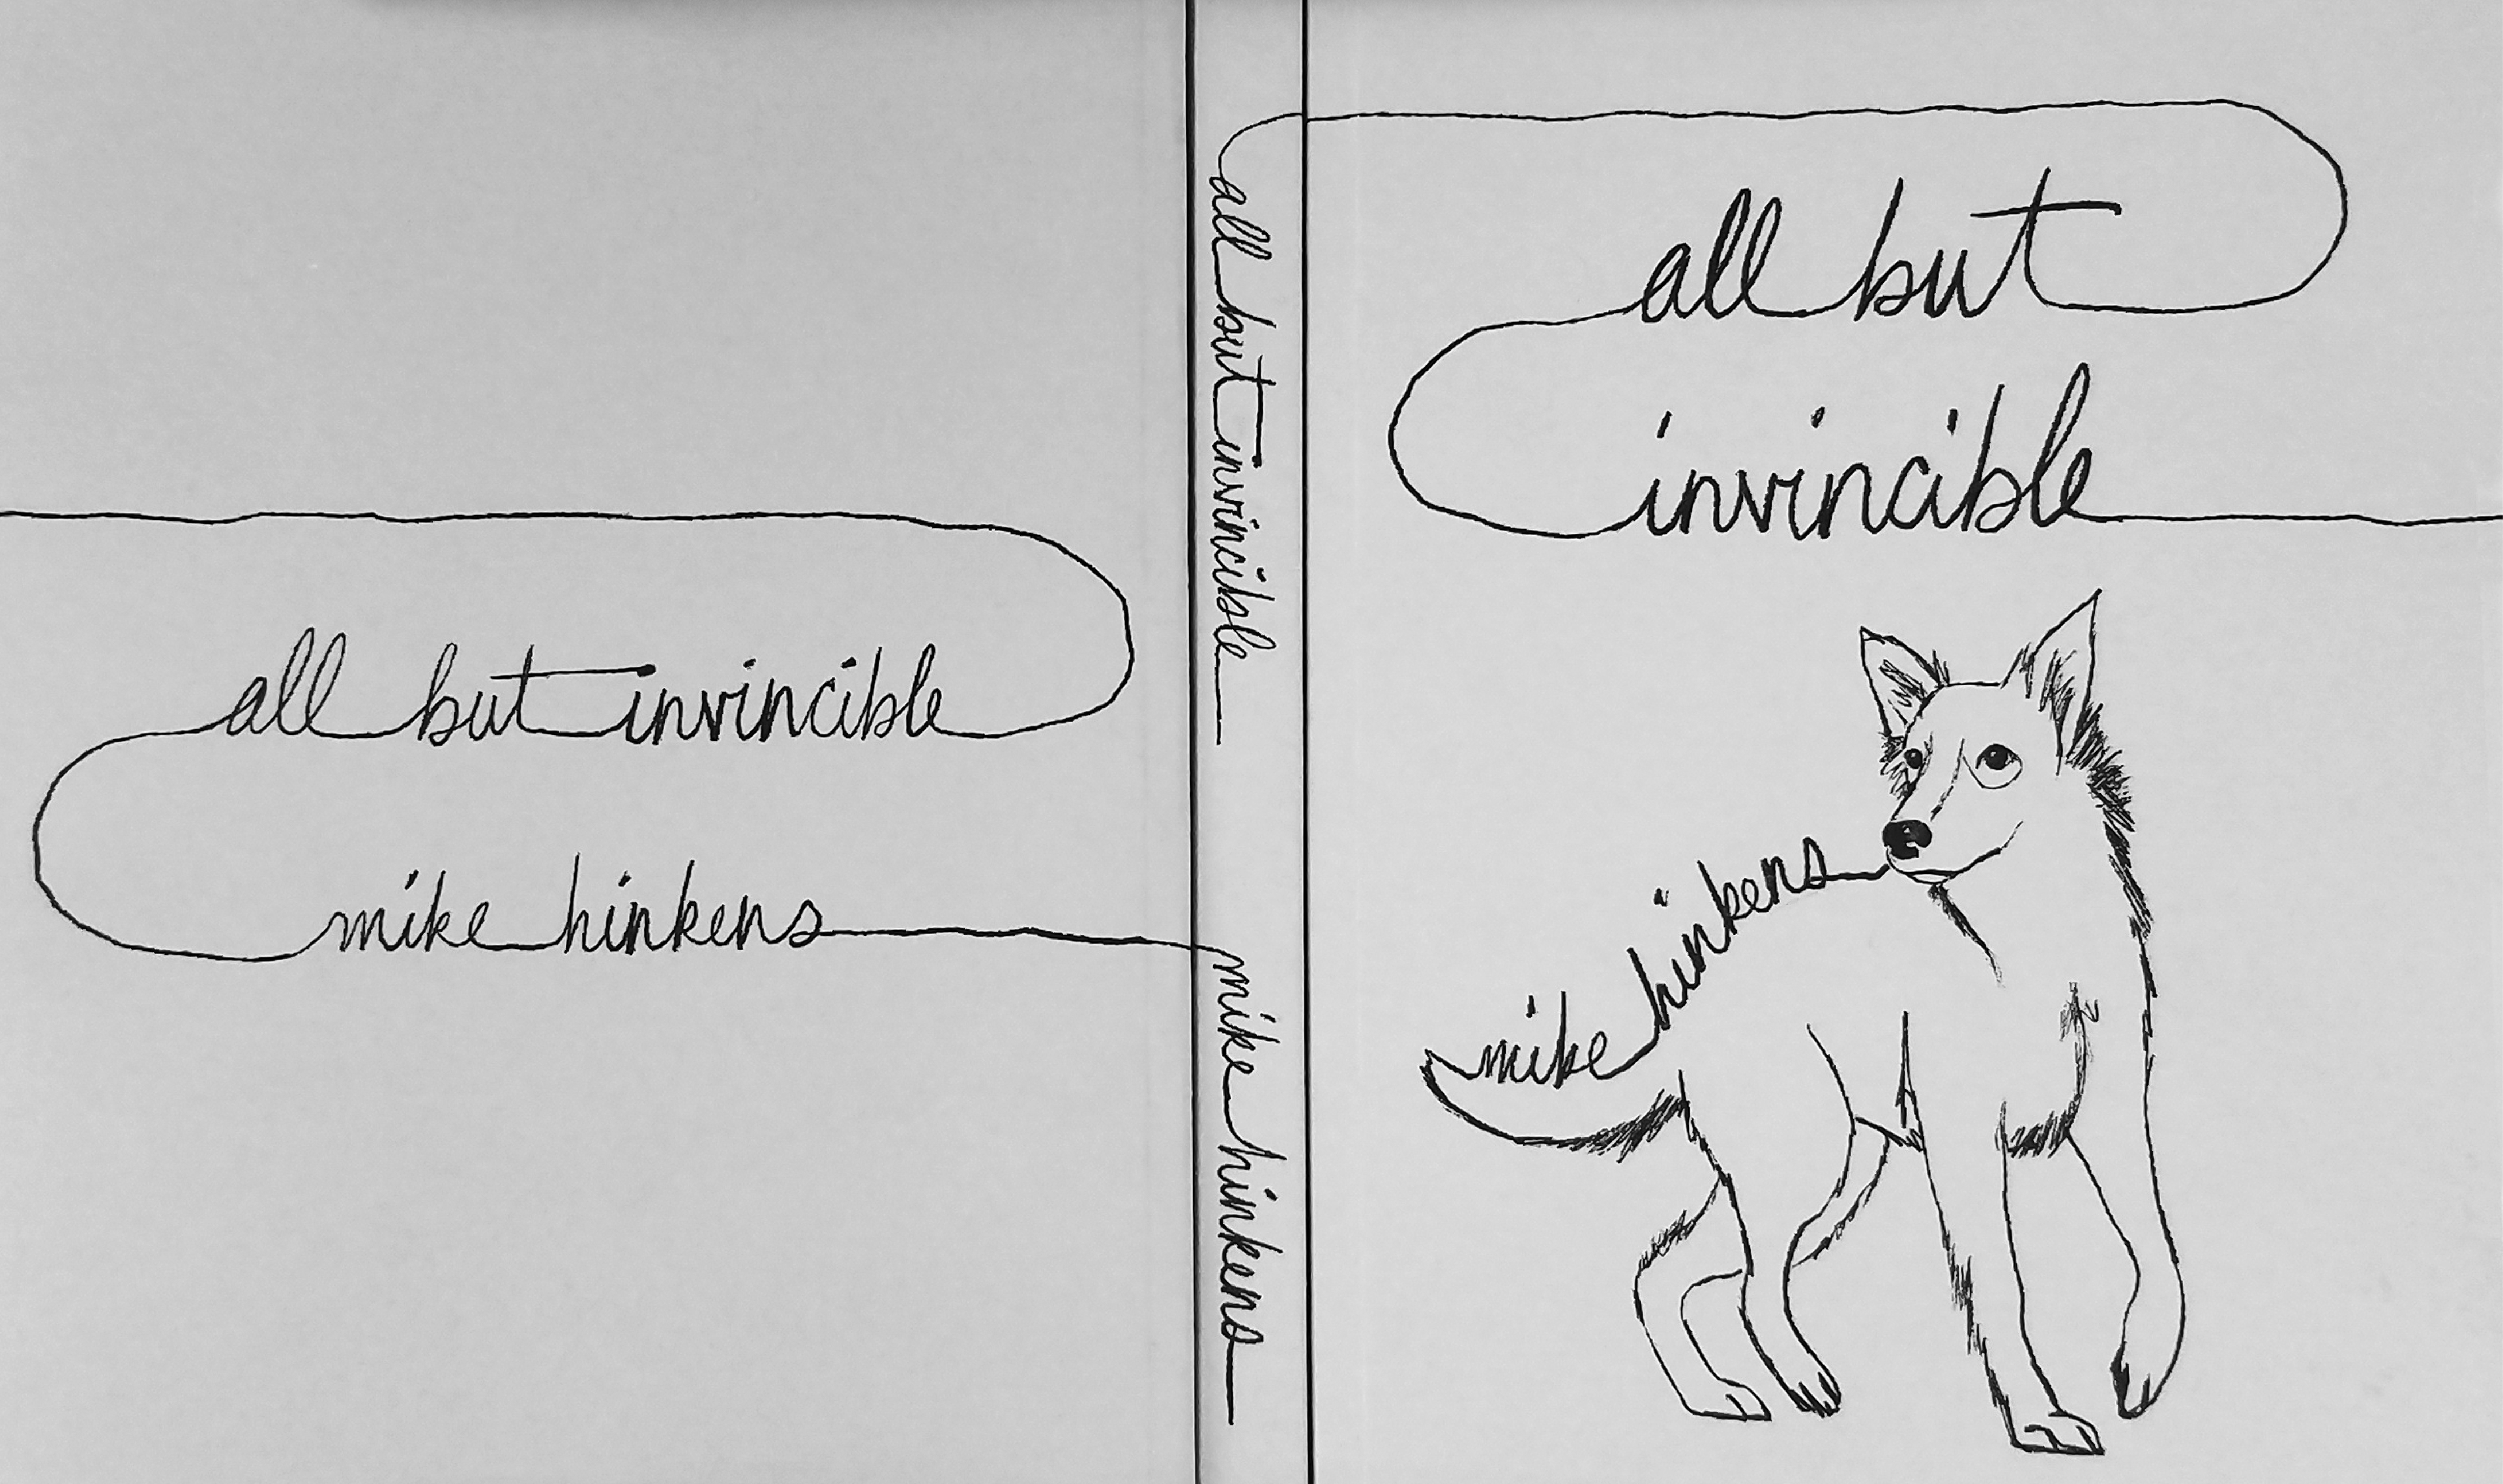 all but invincible
mike hinkens
all but invincible
mike hinkens
all but
invincible
mike hinkens